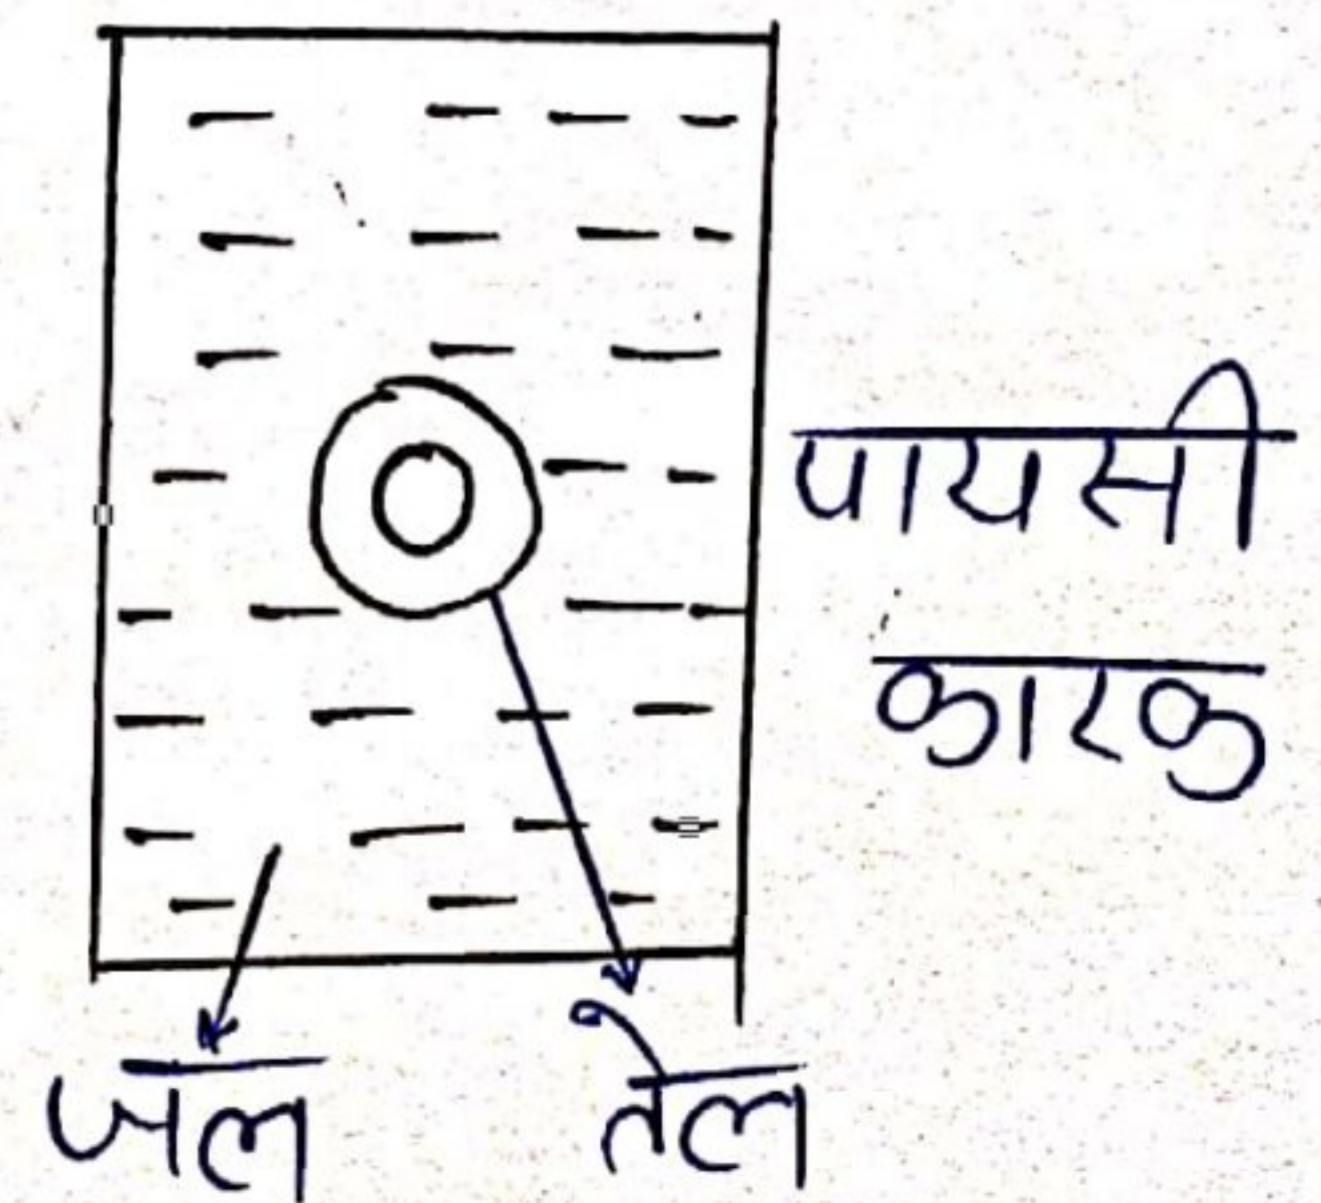 पायसी
कारक
जल
तेल